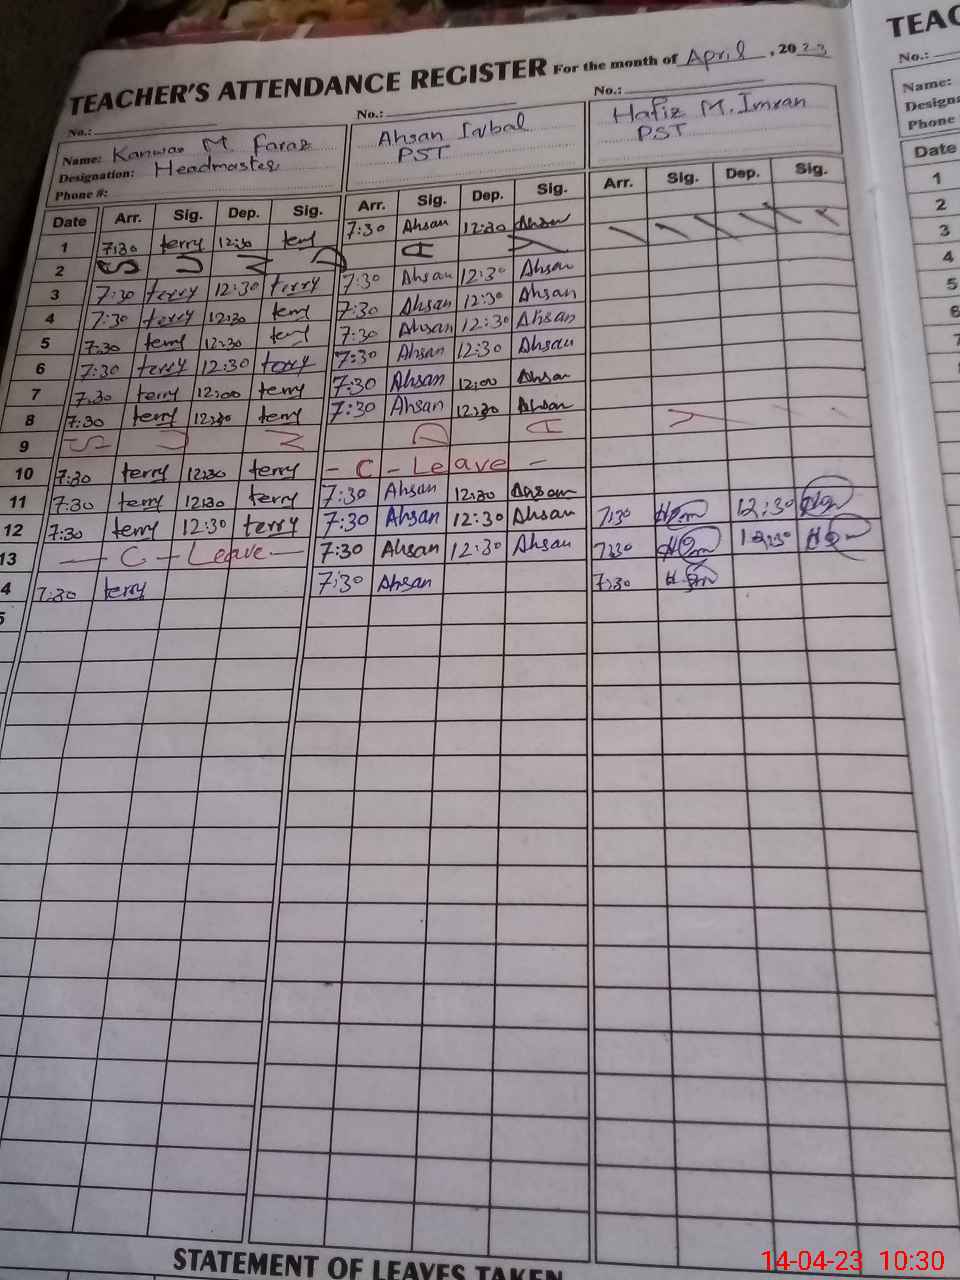 TEACHER'S ATTENDANCE REGISTER For the month of April, 2023
TEAC
No.: No.: No.: No.:
Name: Kanwar M Faraz Ahsan Iqbal Hafiz M. Imran Name:
Designation: Headmaster PST PST Design
Phone #: Phone
Date Arr. Sig. Dep. Sig. Arr. Sig. Dep. Sig. Arr. Sig. Dep. Sig. Date
1 7:30 terry 12:30 terry 7:30 Ahsan 12:30 Ahsan 1
2 S U N D A Y 2
3 7:30 terry 12:30 terry 7:30 Ahsan 12:30 Ahsan 3
4 7:30 terry 12:30 terry 7:30 Ahsan 12:30 Ahsan 4
5 7:30 terry 12:30 terry 7:30 Ahsan 12:30 Ahsan 5
6 7:30 terry 12:30 terry 7:30 Ahsan 12:30 Ahsan 6
7 7:30 terry 12:00 terry 7:30 Ahsan 12:00 Ahsan 7
8 7:30 terry 12:30 terry 7:30 Ahsan 12:30 Ahsan
9 S U N D A Y
10 7:30 terry 12:30 terry - C - Leave -
11 7:30 terry 12:30 terry 7:30 Ahsan 12:30 Ahsan
12 7:30 terry 12:30 terry 7:30 Ahsan 12:30 Ahsan 7:30 12:30
13 — C — Leave — 7:30 Ahsan 12:30 Ahsan 7:30 12:30
4 7:30 terry 7:30 Ahsan 7:30
5
STATEMENT OF LEAVES TAKEN
14-04-23 10:30